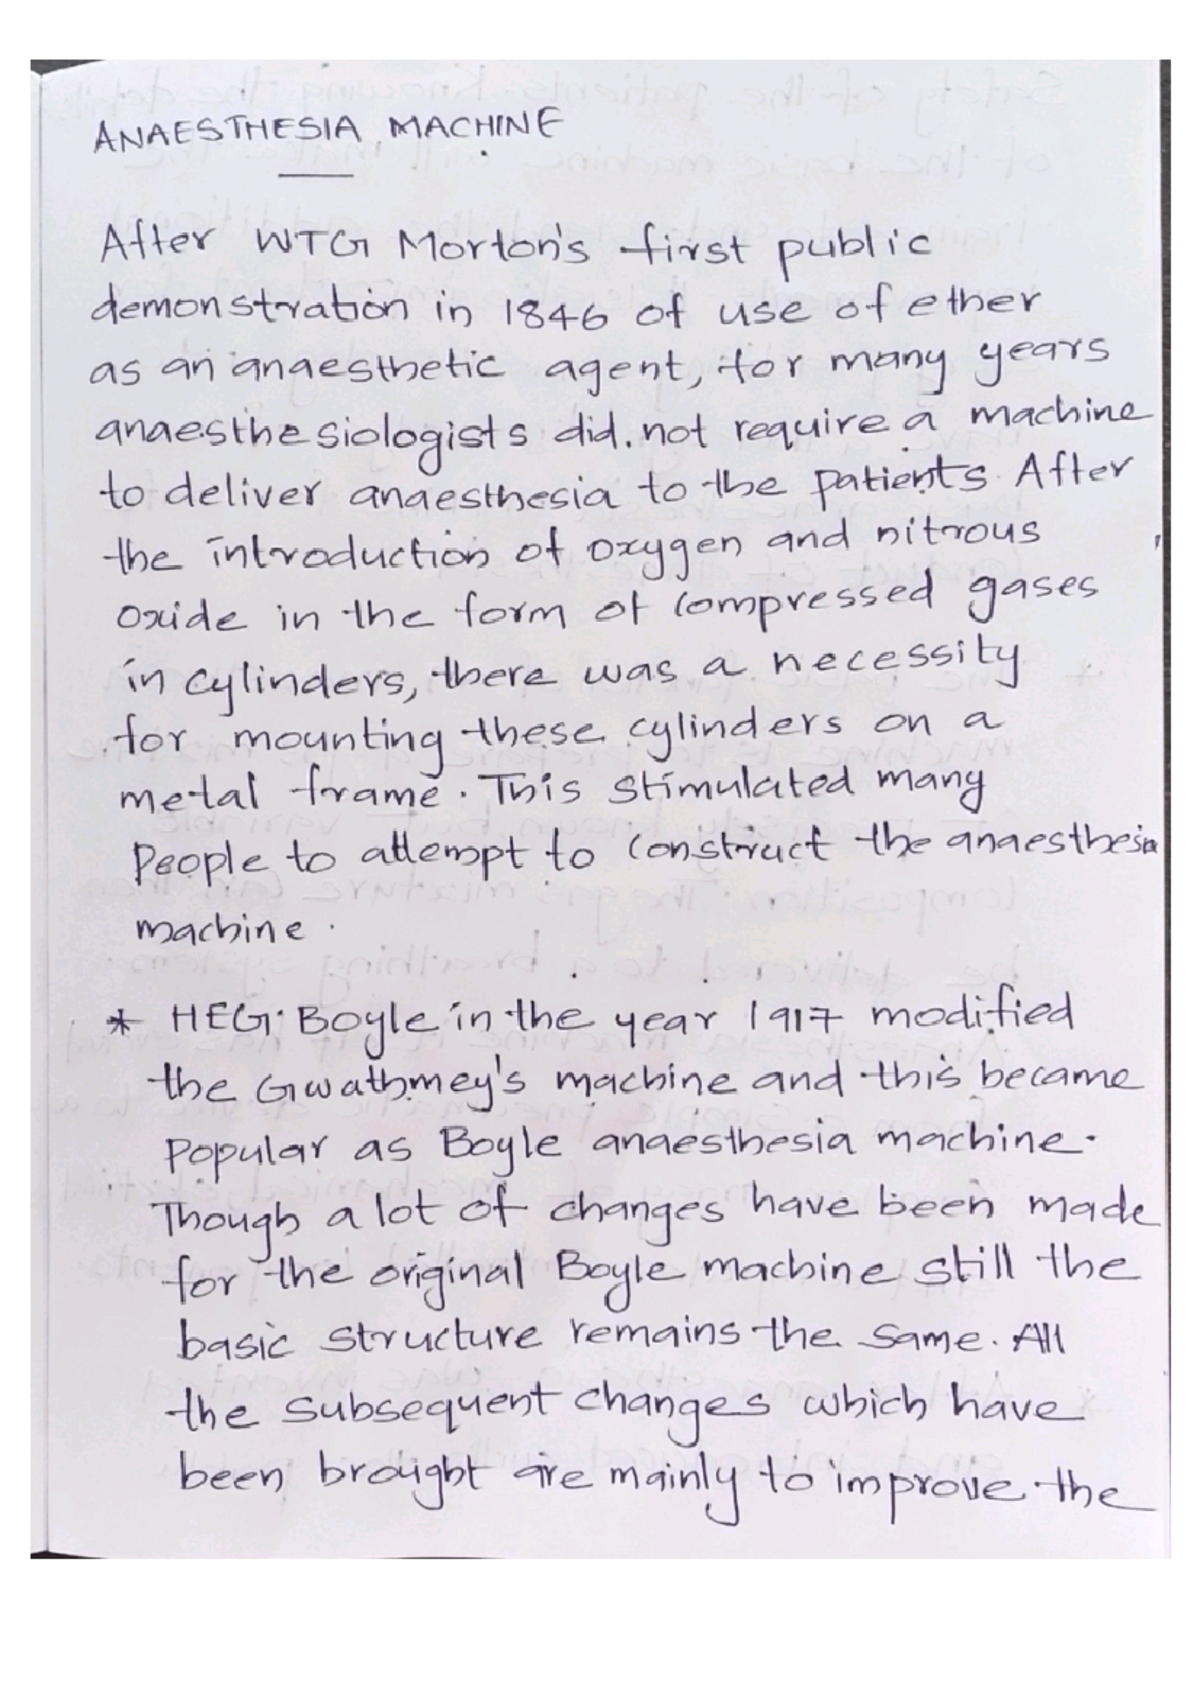 ANAESTHESIA MACHINE
After WTG Morton's first public
demonstration in 1846 of use of ether
as an anaesthetic agent, for many years
anaesthesiologists did not require a machine
to deliver anaesthesia to the patients. After
the introduction of oxygen and nitrous
oxide in the form of compressed gases
in cylinders, there was a necessity
for mounting these cylinders on a
metal frame. This stimulated many
people to attempt to construct the anaesthesia
machine.
* HEG. Boyle in the year 1917 modified
the Gwathmey's machine and this became
popular as Boyle anaesthesia machine.
Though a lot of changes have been made
for the original Boyle machine still the
basic structure remains the same. All
the subsequent changes which have
been brought are mainly to improve the